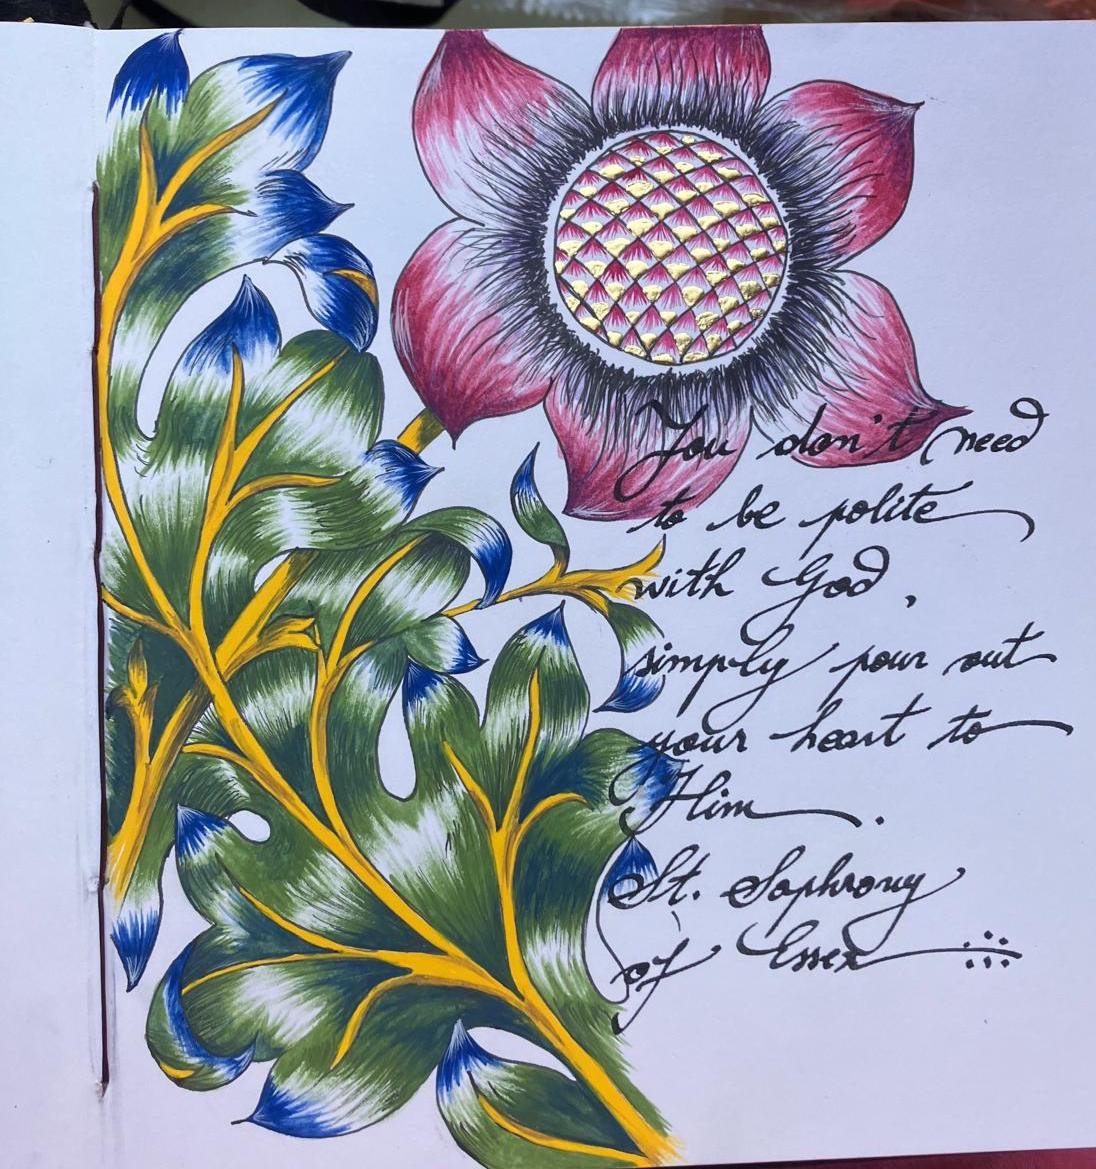 You don't need
to be polite
with God,
simply pour out
your heart to
Him.
St. Sophrony
of Essex